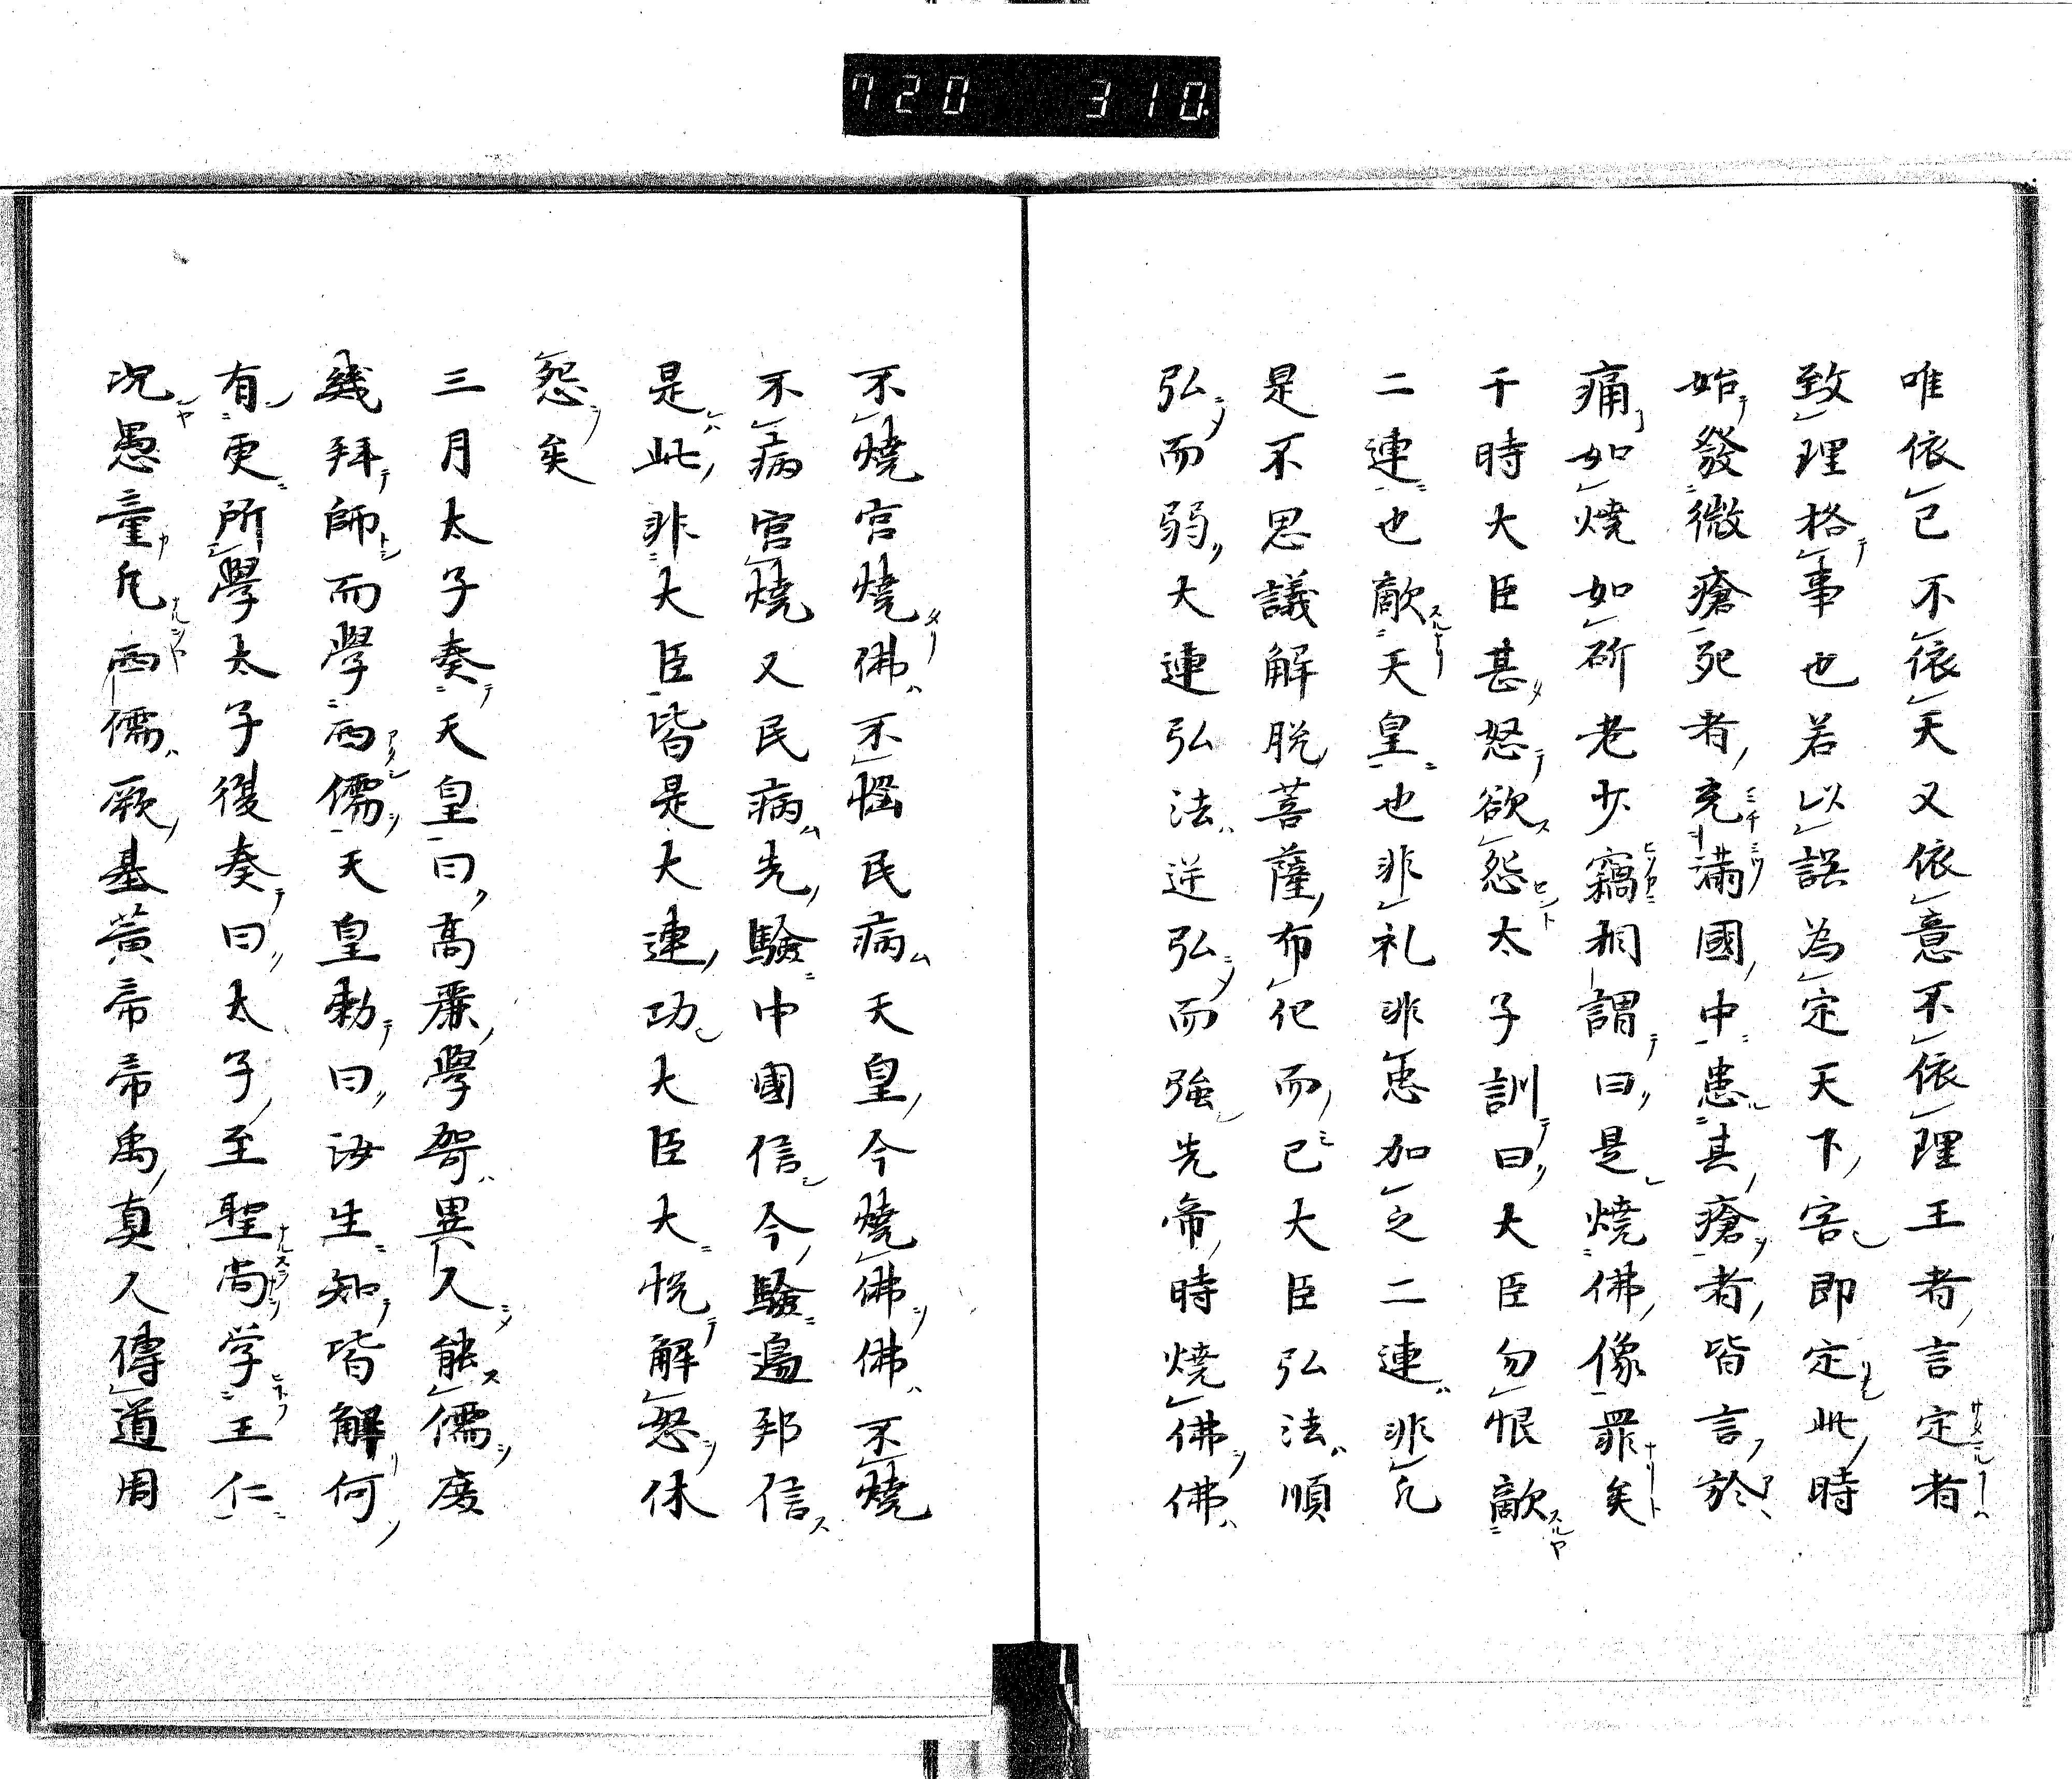 720 310.
唯依己不依天又依意不依理王者言定者
致理格事也若以誤為定天下害即定此時
始發微瘡死者充満國中患其瘡者皆言於
痛如燒如斫老少竊相謂曰是燒佛像罪矣
于時大臣甚怒欲怨太子訓曰大臣勿恨敵
二連也敵天皇也非礼非恚加之二連非凡
是不思議解脱菩薩布化而已大臣弘法順
弘而弱大連弘法逆弘而強先帝時燒佛佛
不燒宮燒佛不惱民病天皇今燒佛佛不燒
不病宮燒又民病先驗中國信今驗遍邦信
是此非大臣皆是大連功大臣大悦解怒休
怨矣
三月太子奏天皇曰高麗學哿異人能儒度
幾拜師而學両儒天皇勅曰汝生知皆解何
有更所學太子復奏曰太子至聖尚学王仁
况愚童凡両儒厥基黃帝帝禹真人傳道周